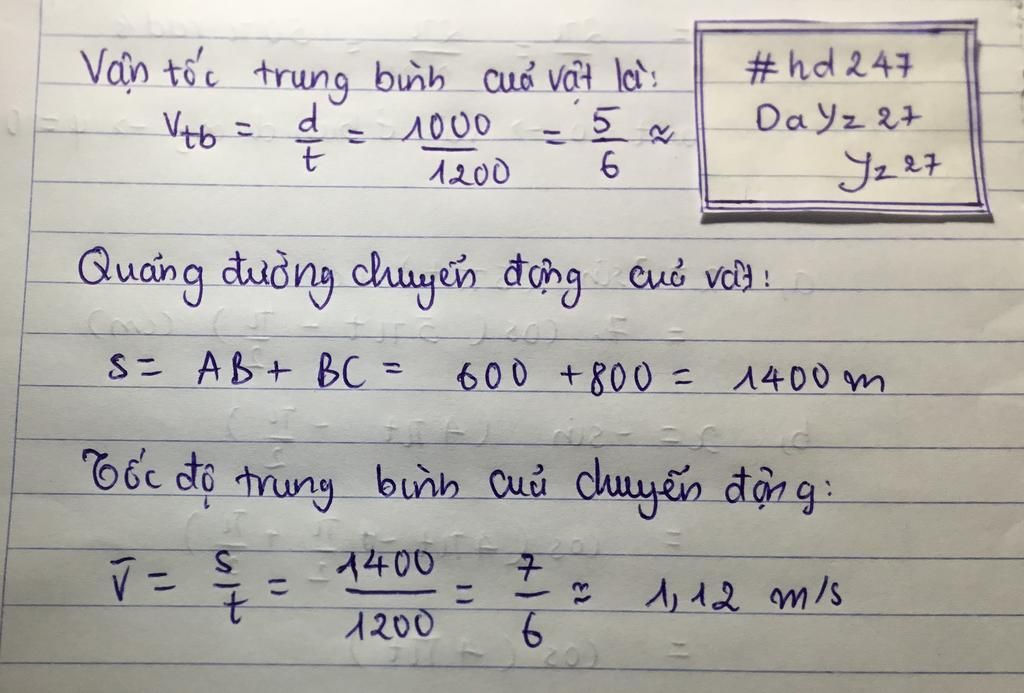 Vận tốc trung bình cuả vật là:
V_tb = d/t = 1000/1200 = 5/6 ≈
#hd247
DaYz27
Yz27
Quảng đường chuyển động cuả vật:
S = AB + BC = 600 + 800 = 1400 m
Tốc độ trung bình cuả chuyển động:
V̄ = s/t = 1400/1200 = 7/6 ≈ 1,12 m/s